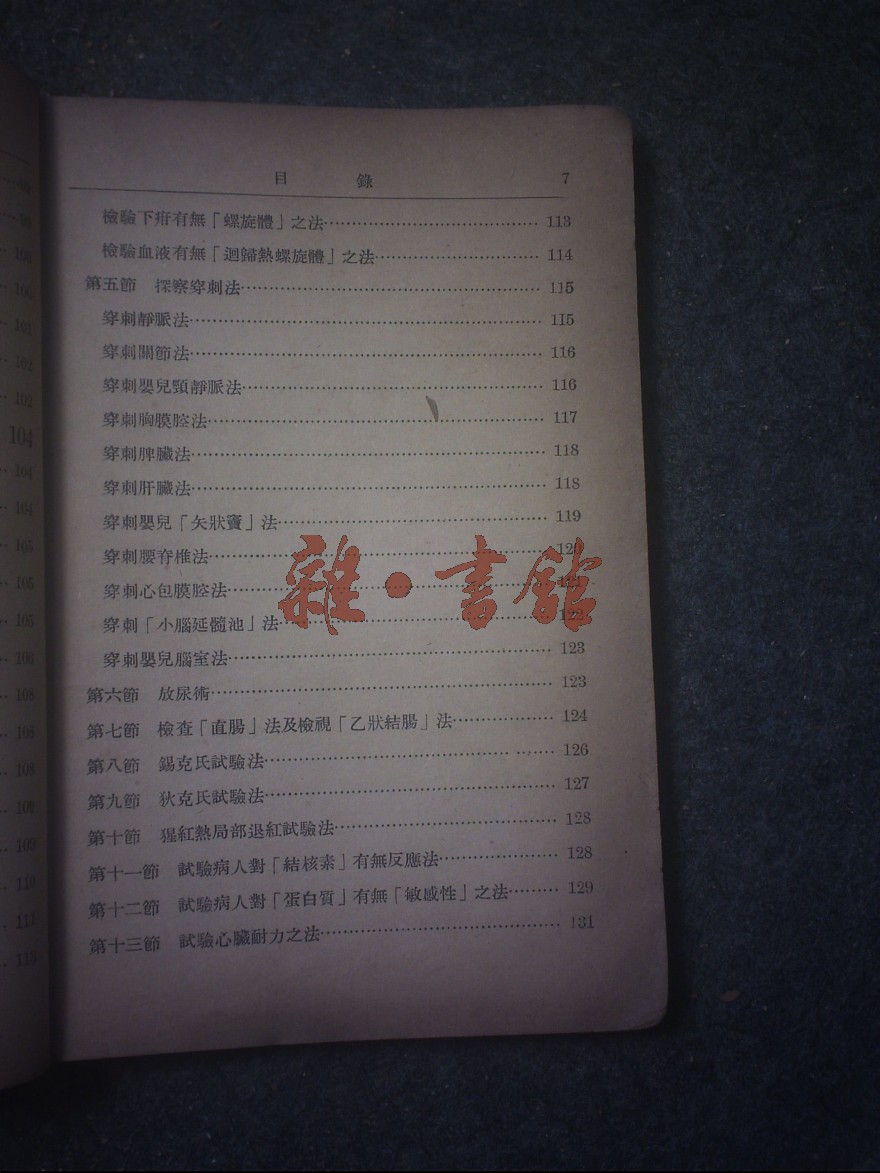 目　錄　7
檢驗下疳有無「螺旋體」之法…………113
檢驗血液有無「迴歸熱螺旋體」之法…………114
第五節　探察穿刺法…………115
穿刺靜脈法…………115
穿刺關節法…………116
穿刺嬰兒頸靜脈法…………116
穿刺胸膜腔法…………117
穿刺脾臟法…………118
穿刺肝臟法…………118
穿刺嬰兒「矢狀竇」法…………119
穿刺腰脊椎法…………120
穿刺心包膜腔法…………121
穿刺「小腦延髓池」法…………122
穿刺嬰兒腦室法…………123
第六節　放尿術…………123
第七節　檢查「直腸」法及檢視「乙狀結腸」法…………124
第八節　錫克氏試驗法…………126
第九節　狄克氏試驗法…………127
第十節　猩紅熱局部退紅試驗法…………128
第十一節　試驗病人對「結核素」有無反應法…………128
第十二節　試驗病人對「蛋白質」有無「敏感性」之法…………129
第十三節　試驗心臟耐力之法…………131
雜·書館
100
101
102
102
104
104
104
105
105
105
106
108
108
108
109
110
111
113